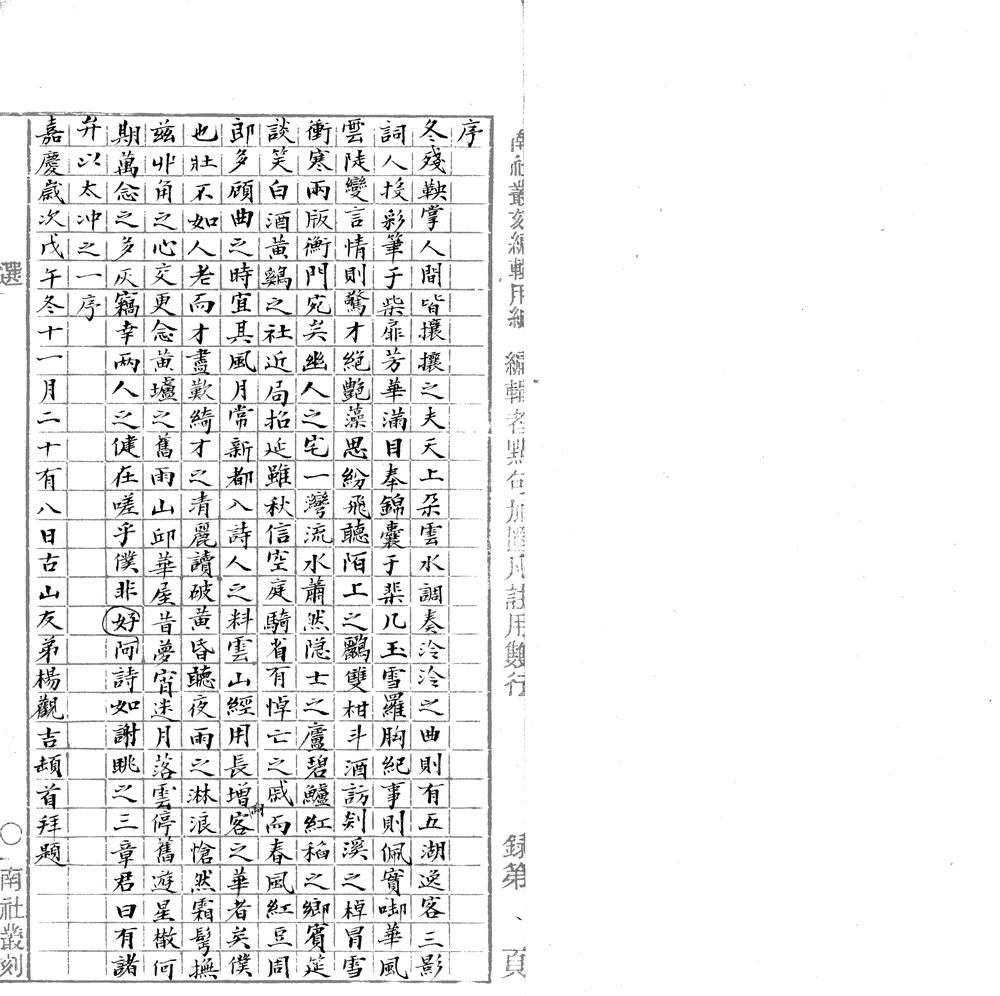 序
冬殘鞅掌人間皆攘攘之夫天上朵雲水調奏泠泠之曲則有五湖逸客三影
詞人授彩筆于柴扉芳華滿目奉錦囊于棐几玉雪羅胸紀事則佩寶啣華風
雲陡變言情則驚才絕艷藻思紛飛聽陌上之鸝雙柑斗酒訪剡溪之棹冒雪
衝寒兩版衡門宛矣幽人之宅一灣流水蕭然隐士之廬碧鱸紅稻之鄉賓筵
談笑白酒黃鷄之社近局招延雖秋信空庭騎省有悼亡之戚而春風紅豆周
郎多顧曲之時宜其風月常新都入詩人之料雲山經用長增客之華者矣僕
也壯不如人老而才盡歎綺才之清麗讀破黃昏聽夜雨之淋浪愴然霜髩撫
兹丱角之心交更念黃壚之舊雨山邱華屋昔夢宵迷月落雲停舊遊星散何
期萬念之多灰竊幸兩人之健在嗟乎僕非好阿詩如謝眺之三章君曰有諸
弁以太冲之一序
嘉慶歲次戊午冬十一月二十有八日古山友弟楊觀吉頓首拜題
選 〇 南社叢刻
南社叢刻編輯用紙 編輯者點句加圈凡註用雙行 錄第 頁